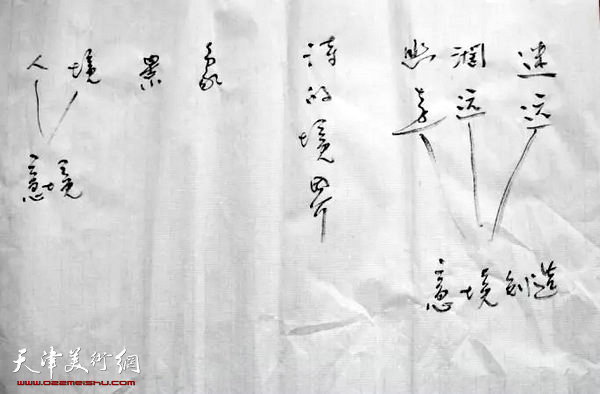 迷远
阔远
幽远
意境创造
诗的境界
象
景
境
人
意境
天津美術網
www.022meishu.com